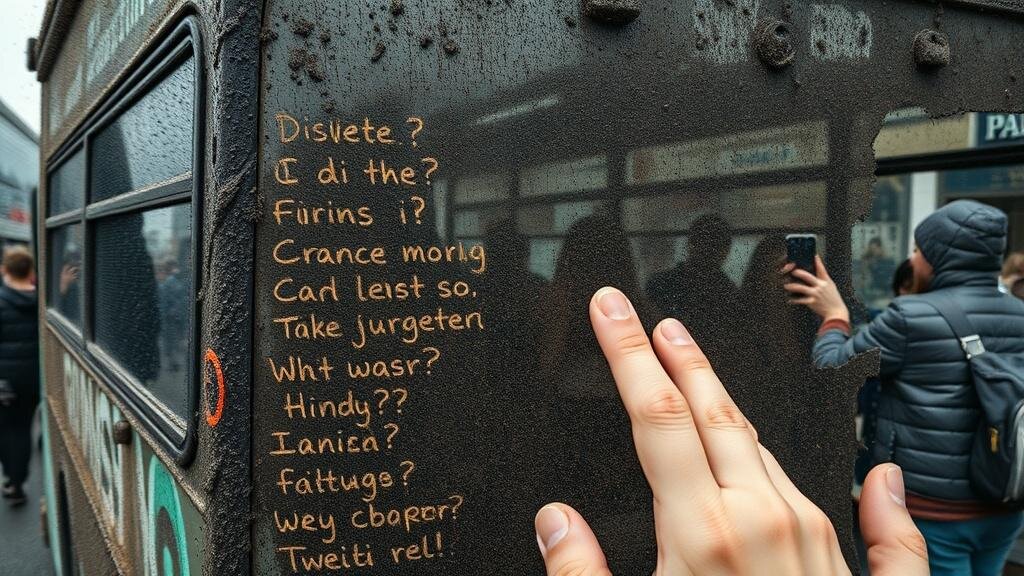 Disvete.?
I di the?
Firins i?
Crance morlig
Card leist so.
Take jurgeten
Wht wasr?
Hindy??
Ianica?
faltugs?
wey cbaper?
Tweiti rel!
PAI